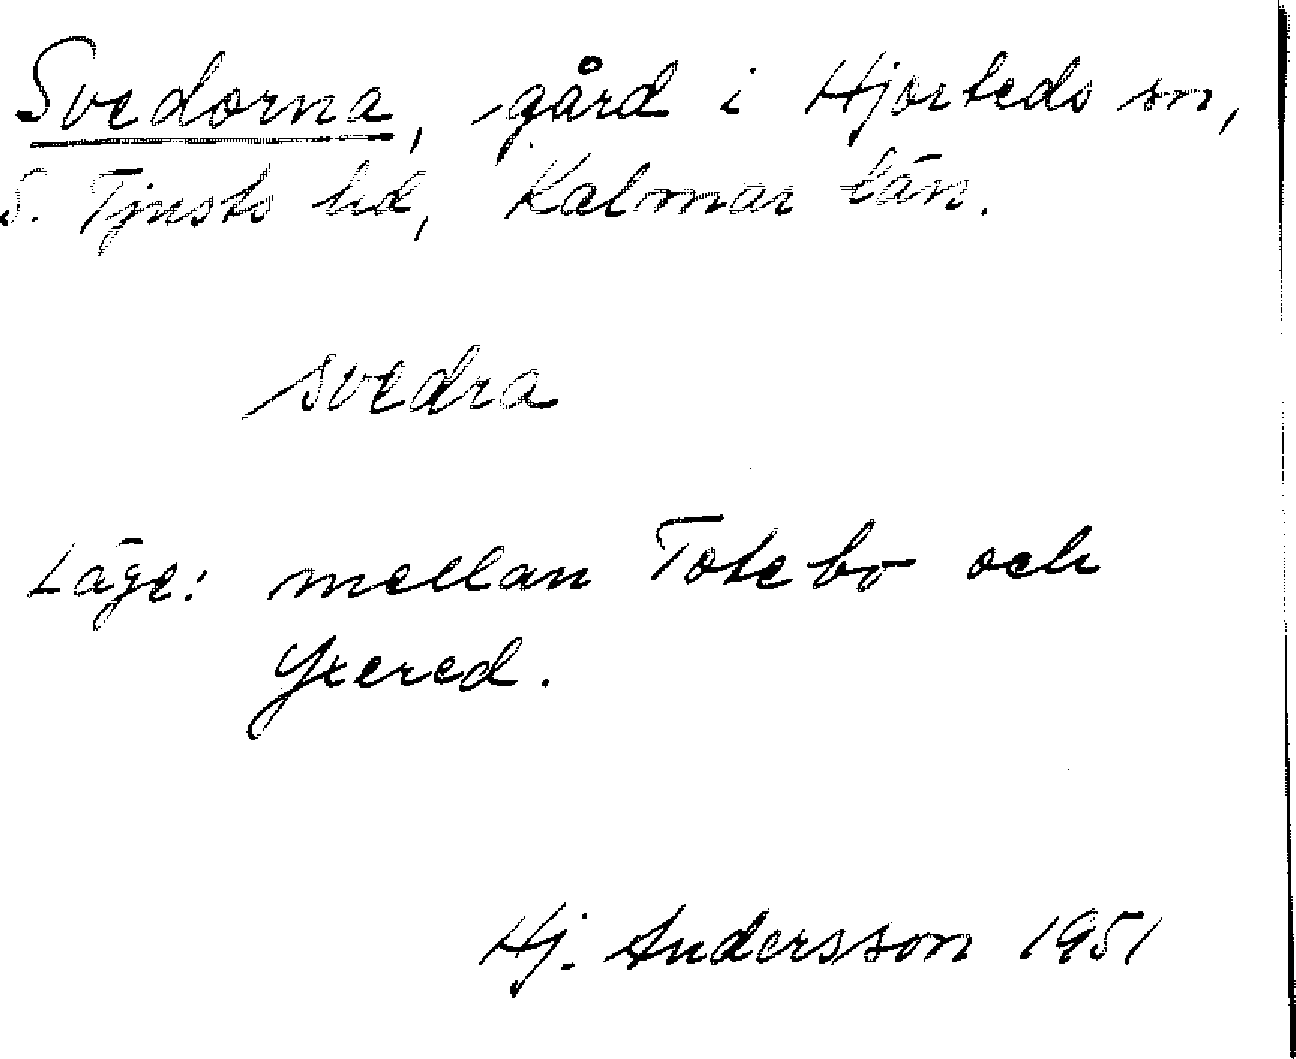 Svedorna, gård i Hjorteds sn,
S. Tjusts hd, Kalmar län.
svedra
Läge: mellan Totebo och
Yxered.
Hj. Andersson 1951